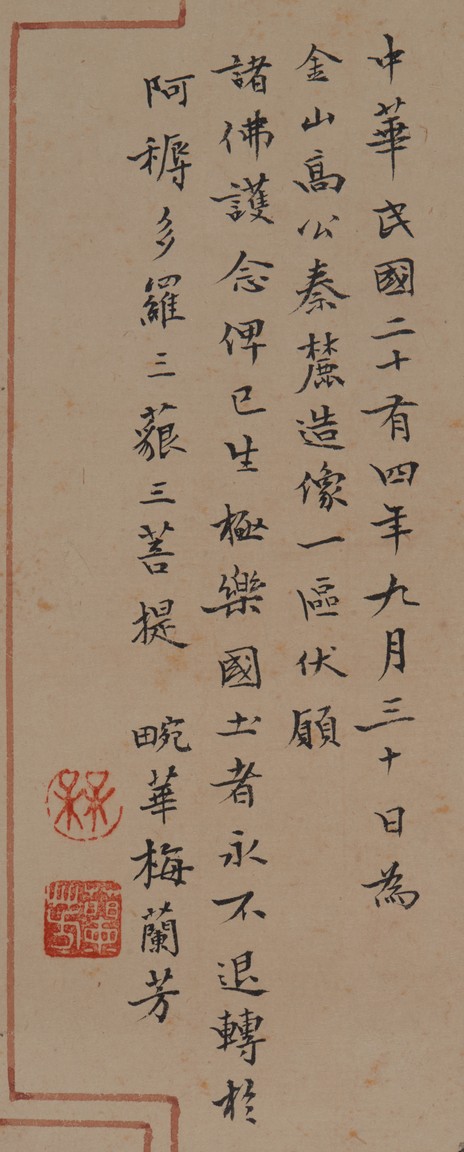 中華民國二十有四年九月三十日為
金山高公秦麓造像一區伏願
諸佛護念俾已生極樂國土者永不退轉於
阿耨多羅三藐三菩提 畹華梅蘭芳